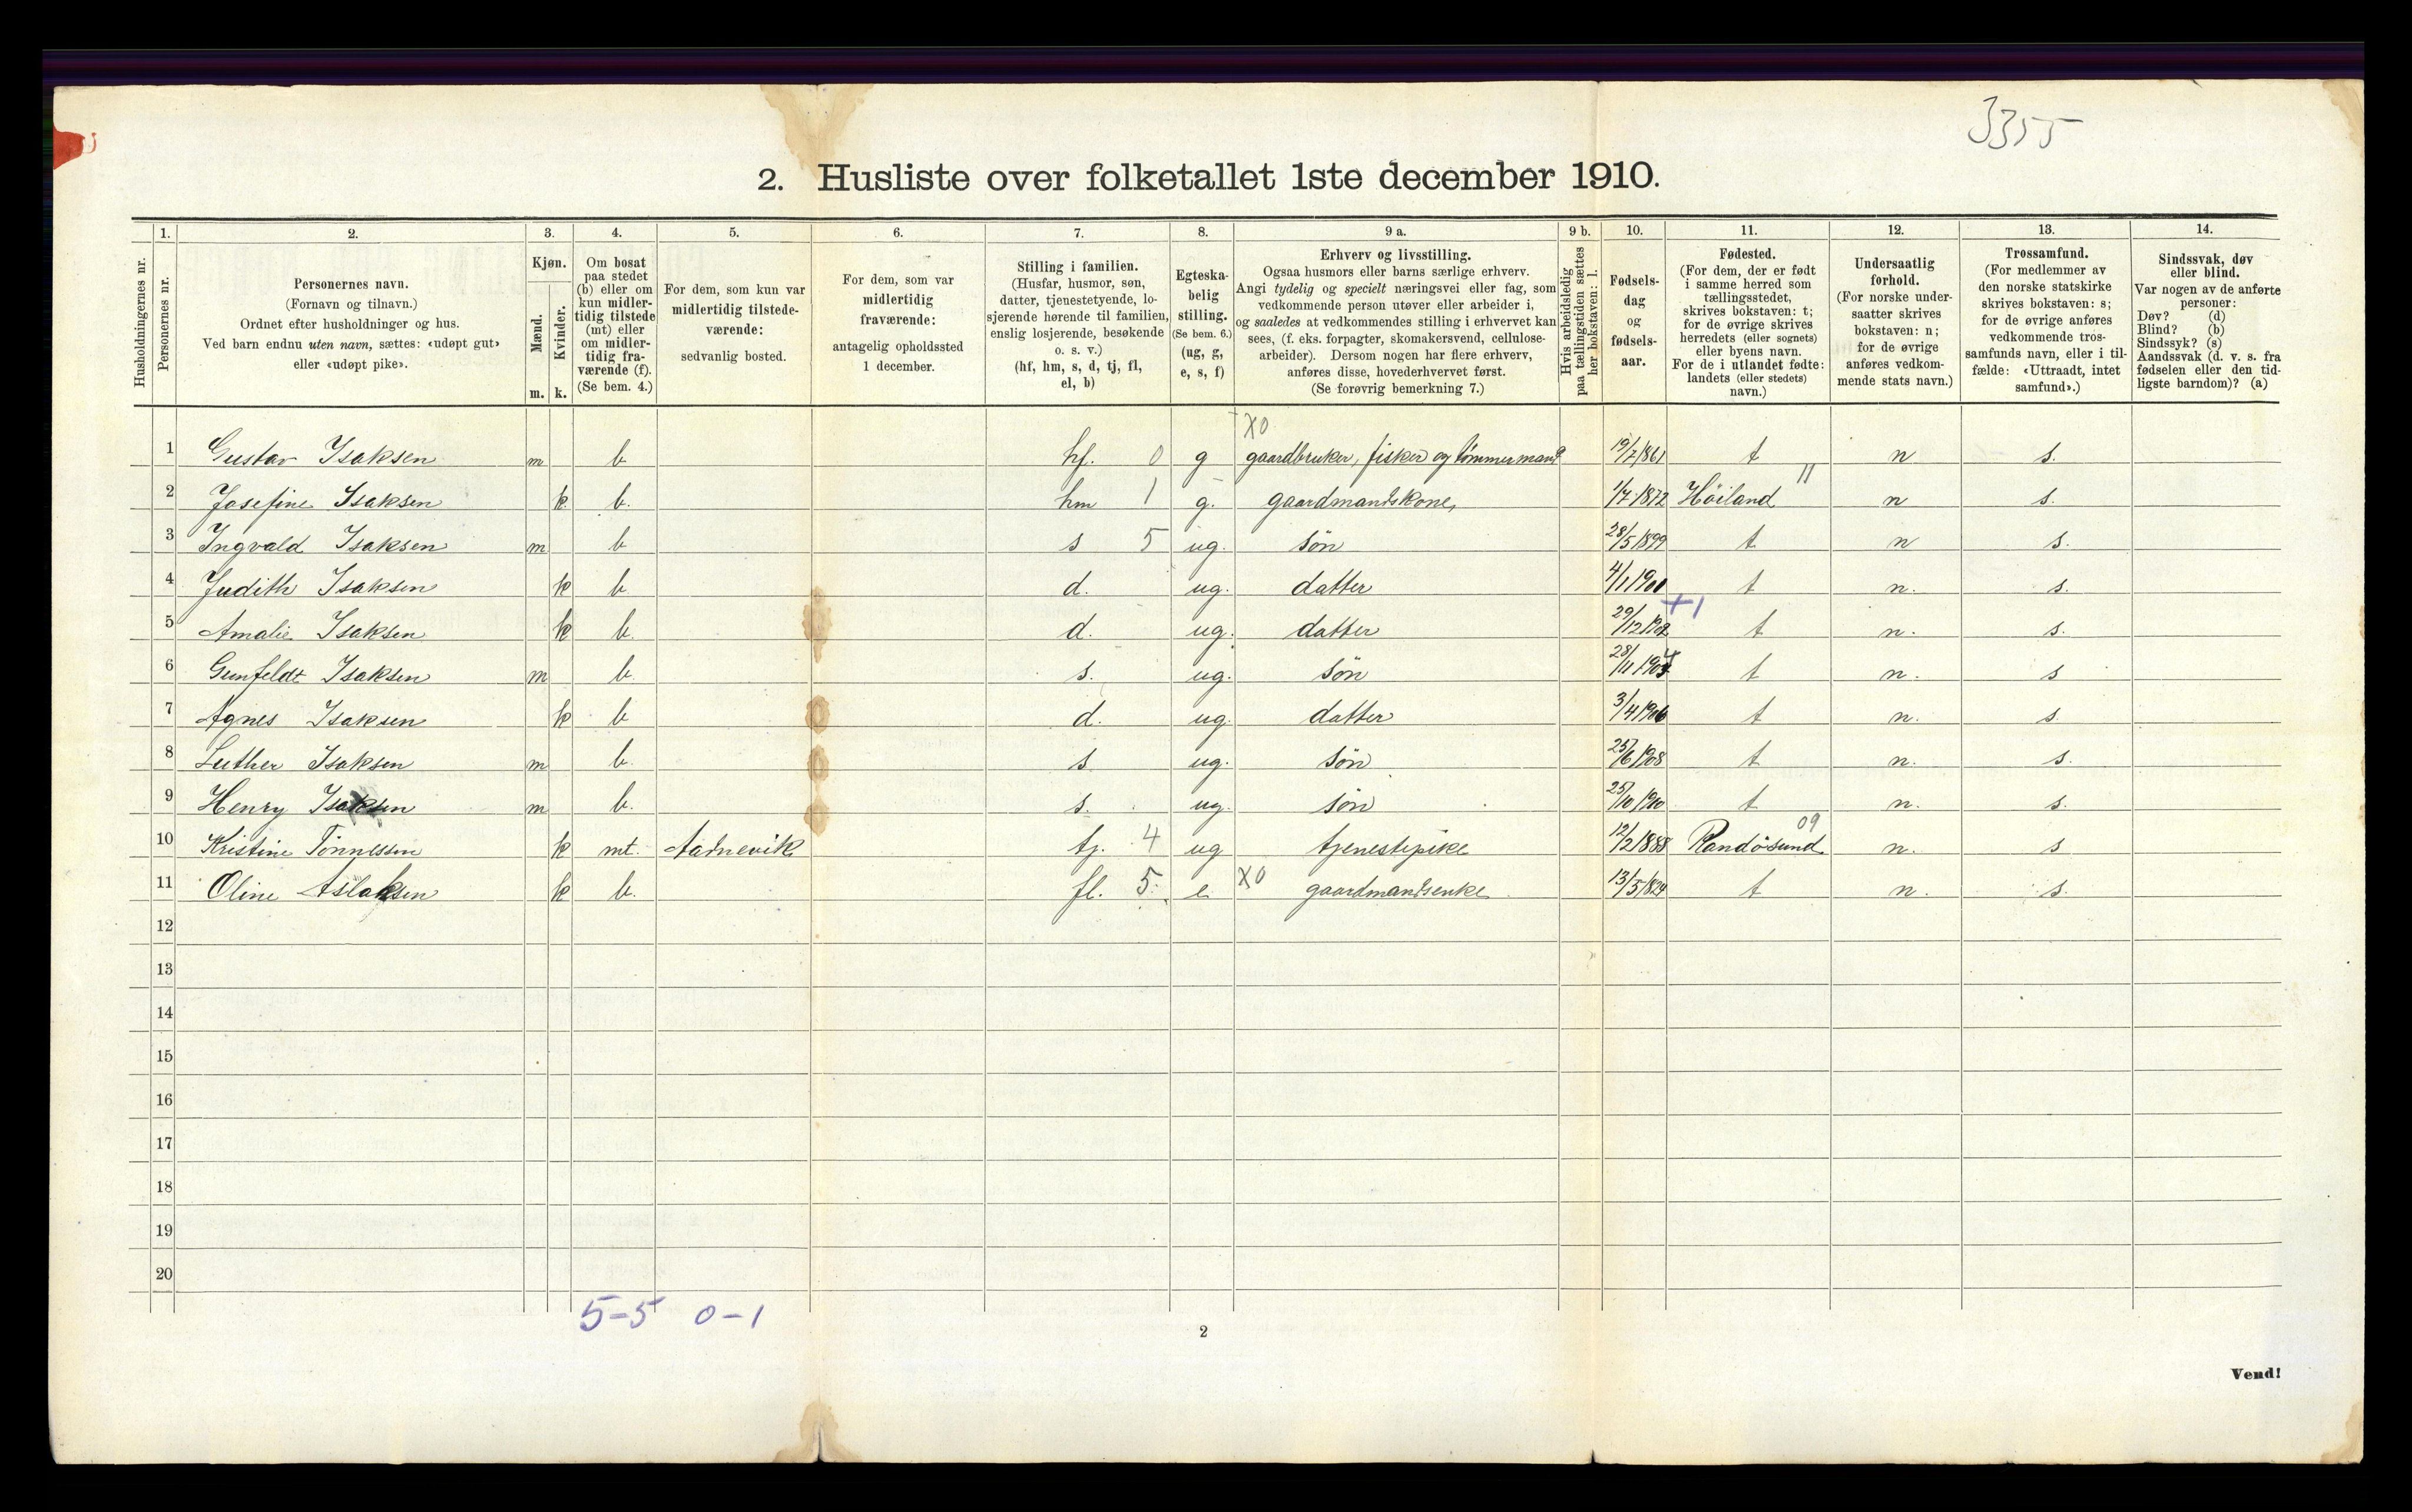 3355
2. Husliste over folketallet 1ste december 1910.
Husholdningernes nr.
1.
Personernes nr.
2.
Personernes navn.
(Fornavn og tilnavn.)
Ordnet efter husholdninger og hus.
Ved barn endnu uten navn, sættes: «udøpt gut»
eller «udøpt pike».
3.
Kjøn.
Mænd.
Kvinder.
m. k.
4.
Om bosat
paa stedet
(b) eller om
kun midler-
tidig tilstede
(mt) eller
om midler-
tidig fra-
værende (f).
(Se bem. 4.)
5.
For dem, som kun var
midlertidig tilstede-
værende:
sedvanlig bosted.
6.
For dem, som var
midlertidig
fraværende:
antagelig opholdssted
1 december.
7.
Stilling i familien.
(Husfar, husmor, søn,
datter, tjenestetyende, lo-
sjerende hørende til familien,
enslig losjerende, besøkende
o. s. v.)
(hf, hm, s, d, tj, fl,
el, b)
8.
Egteska-
belig
stilling.
(Se bem. 6.)
(ug, g,
e, s, f)
9 a.
Erhverv og livsstilling.
Ogsaa husmors eller barns særlige erhverv.
Angi tydelig og specielt næringsvei eller fag, som
vedkommende person utøver eller arbeider i,
og saaledes at vedkommendes stilling i erhvervet kan
sees, (f. eks. forpagter, skomakersvend, cellulose-
arbeider). Dersom nogen har flere erhverv,
anføres disse, hovederhvervet først.
(Se forøvrig bemerkning 7.)
9 b.
Hvis arbeidsledig
paa tællingstiden sættes
her bokstaven: l.
10.
Fødsels-
dag
og
fødsels-
aar.
11.
Fødested.
(For dem, der er født
i samme herred som
tællingsstedet,
skrives bokstaven: t;
for de øvrige skrives
herredets (eller sognets)
eller byens navn.
For de i utlandet fødte:
landets (eller stedets)
navn.)
12.
Undersaatlig
forhold.
(For norske under-
saatter skrives
bokstaven: n;
for de øvrige
anføres vedkom-
mende stats navn.)
13.
Trossamfund.
(For medlemmer av
den norske statskirke
skrives bokstaven: s;
for de øvrige anføres
vedkommende tros-
samfunds navn, eller i til-
fælde: «Uttraadt, intet
samfund».)
14.
Sindssvak, døv
eller blind.
Var nogen av de anførte
personer:
Døv? (d)
Blind? (b)
Sindssyk? (s)
Aandssvak (d. v. s. fra
fødselen eller den tid-
ligste barndom)? (a)
X0
1 Gustav Isaksen m b hf. 0 g gaardbruker, fisker og tømmermand 19/7 1861 t n s.
11
2 Josefine Isaksen k. b. hm 1 g. gaardmandskone, 1/7 1872 Höiland n s.
3 Ingvald Isaksen m b s 5 ug. sön 28/5 1899 t n s.
4 Judith Isaksen k b d. ug. datter 4/1 1901 t n. s.
+1
5 Amalie Isaksen k b. d. ug. datter 29/12 1902 t n. s.
6 Gunfeldt Isaksen m b. s. ug. sön 28/11 1904 t n. s
7 Agnes Isaksen k b d. ug. datter 3/4 1906 t n. s.
8 Luther Isaksen m b. s ug. sön 25/6 1908 t n. s.
9 Henry Isaksen m b. s. ug. sön 25/10 1910 t n. s.
09
10 Kristine Tönnessen k mt. Aadnevik tj. 4 ug tjenestepike 12/2 1888 Randösund n. s
11 Oline Aslaksen k b. fl. 5. e X0 gaardmandsenke 13/5 1824 t n. s.
12
13
14
15
16
17
18
19
20
5-5 0-1
2
Vend!